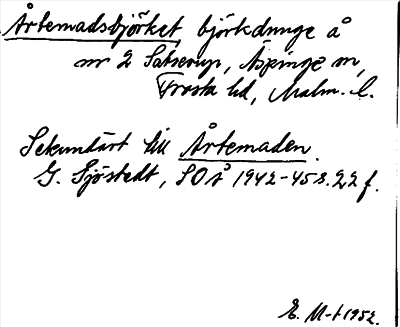 Årtemadsbjörket, björkdunge å
nr 2 Satserup, Äspinge sn,
Frosta hd, Malm. l.
Sekundärt till Årtemaden.
G. Sjöstedt, SOÅ 1942-45 s. 22 f.
E. M-t 1952.